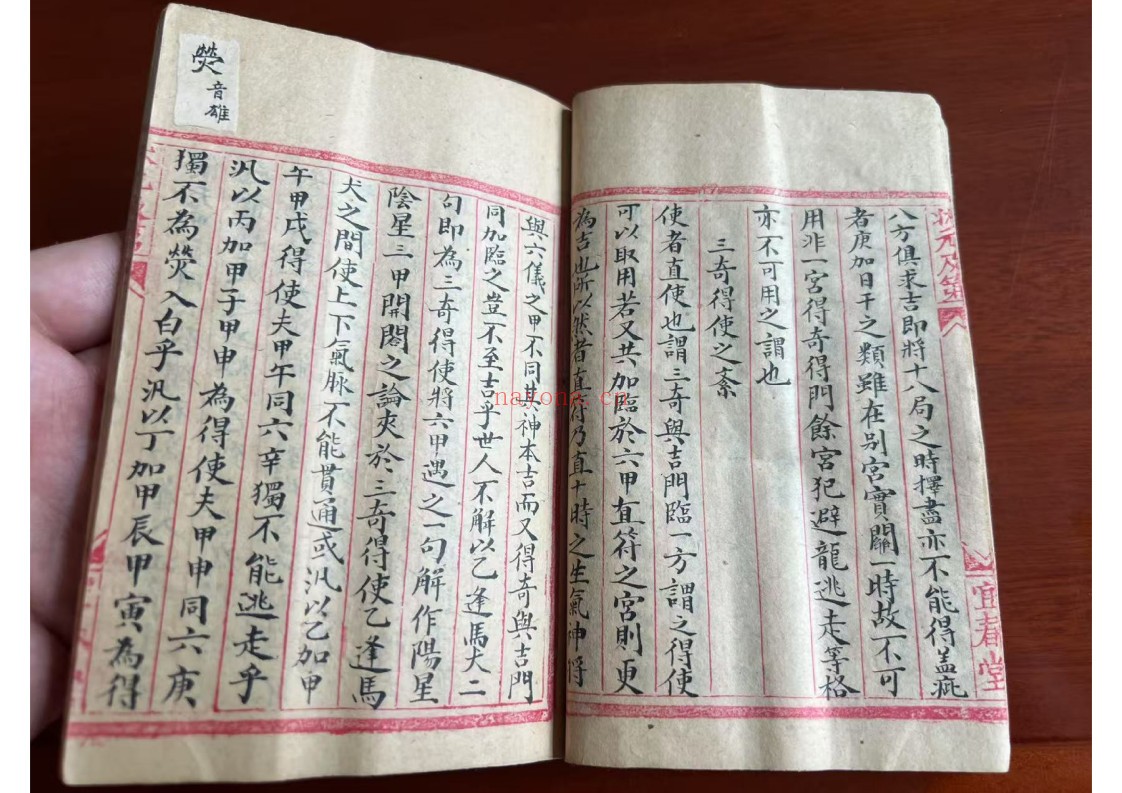 八方俱求吉即將十八局之時擇盡亦不能得盖疵
者庚加日干之類雖在别宮實關一時故不可
用非一宮得奇得門餘宮犯避龍逃走等格
亦不可用之謂也
三奇得使之紊
使者直使也謂三奇與吉門臨一方謂之得使
可以取用若又共加臨於六甲直符之宮則更
為吉也所以然者直符乃直十時之生氣神將
與六儀之甲不同其神本吉而又得奇與吉門
同加臨之豈不至吉乎世人不解以乙逢馬犬二
句即為三奇得使將六甲遇之一句解作陽星
陰星三甲開闔之論夾於三奇得使乙逢馬
犬之間使上下氣脉不能貫通或汎以乙加甲
午甲戌得使夫甲午同六辛獨不能逃走乎
汎以丙加甲子甲申為得使夫甲申同六庚
獨不為熒入白乎汎以丁加甲辰甲寅為得
熒
音雄
狀元及第
宜春堂
nayona.cn